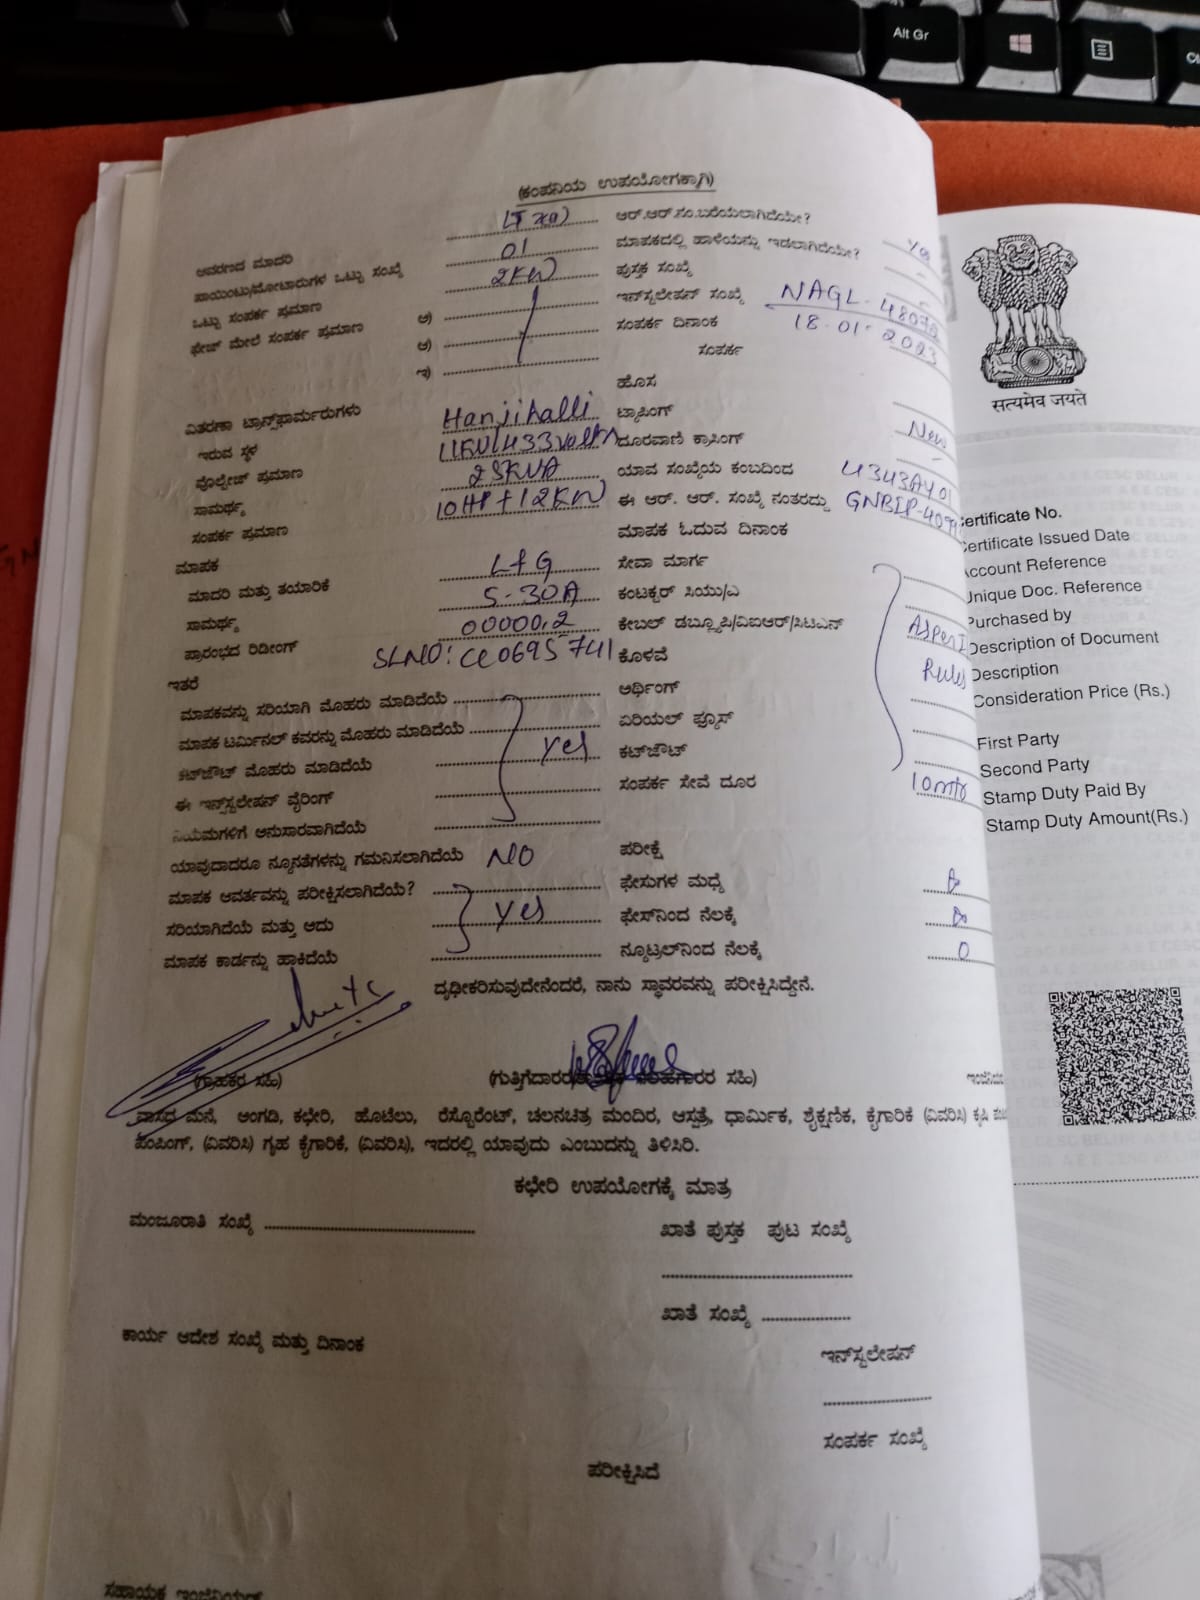 Alt Gr
(ಕಂಪನಿಯ ಉಪಯೋಗಕ್ಕಾಗಿ)
ಆವರಣದ ಮಾದರಿ
ಪಾಯಿಂಟು/ಮೋಟಾರುಗಳ ಒಟ್ಟು ಸಂಖ್ಯೆ 01
ಒಟ್ಟು ಸಂಪರ್ಕ ಪ್ರಮಾಣ 2KW
ಫೇಜ್ ಮೇಲೆ ಸಂಪರ್ಕ ಪ್ರಮಾಣ ಅ)
ಆ)
ಇ)
ವಿತರಣಾ ಟ್ರಾನ್ಸ್‌ಫಾರ್ಮರುಗಳು
ಇರುವ ಸ್ಥಳ Hanjihalli
ವೊಲ್ಟೇಜ್ ಪ್ರಮಾಣ 11KV/433volts
ಸಾಮರ್ಥ್ಯ 25KVA
ಸಂಪರ್ಕ ಪ್ರಮಾಣ 10HP+12KW
ಮಾಪಕ
ಮಾದರಿ ಮತ್ತು ತಯಾರಿಕೆ L&G
ಸಾಮರ್ಥ್ಯ 5-30A
ಪ್ರಾರಂಭದ ರಿಡೀಂಗ್ 00000.2
ಇತರೆ SLNO: CC0695741
ಮಾಪಕವನ್ನು ಸರಿಯಾಗಿ ಮೊಹರು ಮಾಡಿದೆಯೆ
ಮಾಪಕ ಟರ್ಮಿನಲ್ ಕವರನ್ನು ಮೊಹರು ಮಾಡಿದೆಯೆ
ಕಟ್‌ಜೌಟ್ ಮೊಹರು ಮಾಡಿದೆಯೆ Yes
ಈ ಇನ್‌ಸ್ಟಲೇಷನ್ ವೈರಿಂಗ್
ನಿಯಮಗಳಿಗೆ ಅನುಸಾರವಾಗಿದೆಯೆ
ಯಾವುದಾದರೂ ನ್ಯೂನತೆಗಳನ್ನು ಗಮನಿಸಲಾಗಿದೆಯೆ NO
ಮಾಪಕ ಆವರ್ತವನ್ನು ಪರೀಕ್ಷಿಸಲಾಗಿದೆಯೆ?
ಸರಿಯಾಗಿದೆಯೆ ಮತ್ತು ಅದು Yes
ಮಾಪಕ ಕಾರ್ಡನ್ನು ಹಾಕಿದೆಯೆ
ಆರ್.ಆರ್.ನಂ.ಬರೆಯಲಾಗಿದೆಯೇ? Yes
ಮಾಪಕದಲ್ಲಿ ಹಾಳೆಯನ್ನು ಇಡಲಾಗಿದೆಯೇ?
ಪುಸ್ತಕ ಸಂಖ್ಯೆ
ಇನ್‌ಸ್ಟಲೇಷನ್ ಸಂಖ್ಯೆ
ಸಂಪರ್ಕ ದಿನಾಂಕ 18.01.2023
ಸಂಪರ್ಕ
ಹೊಸ New
ಟ್ಯಾಪಿಂಗ್
ದೂರವಾಣಿ ಕ್ರಾಸಿಂಗ್
ಯಾವ ಸಂಖ್ಯೆಯ ಕಂಬದಿಂದ
ಈ ಆರ್. ಆರ್. ಸಂಖ್ಯೆ ನಂತರದ್ದು
ಮಾಪಕ ಓದುವ ದಿನಾಂಕ
ಸೇವಾ ಮಾರ್ಗ
ಕಂಟಕ್ಟರ್ ಸಿಯು/ಎ
ಕೇಬಲ್ ಡಬ್ಲ್ಯೂಪಿ/ವಿಐಆರ್/ಸಿಟಿಎಸ್
ಕೊಳವೆ Rules
ಅರ್ಥಿಂಗ್
ಏರಿಯಲ್ ಫ್ಯೂಸ್
ಕಟ್‌ಜೌಟ್
ಸಂಪರ್ಕ ಸೇವೆ ದೂರ
ಪರೀಕ್ಷೆ
ಫೇಸುಗಳ ಮಧ್ಯೆ
ಫೇಸ್‌ನಿಂದ ನೆಲಕ್ಕೆ
ನ್ಯೂಟ್ರಲ್‌ನಿಂದ ನೆಲಕ್ಕೆ 0
ದೃಢೀಕರಿಸುವುದೇನೆಂದರೆ, ನಾನು ಸ್ಥಾವರವನ್ನು ಪರೀಕ್ಷಿಸಿದ್ದೇನೆ.
(ಗ್ರಾಹಕರ ಸಹಿ)
(ಗುತ್ತಿಗೆದಾರರ ಸಹಿ)
ವಾಸದ ಮನೆ, ಅಂಗಡಿ, ಕಛೇರಿ, ಹೊಟೆಲು, ರೆಸ್ಟೊರೆಂಟ್, ಚಲನಚಿತ್ರ ಮಂದಿರ, ಆಸ್ಪತ್ರೆ, ಧಾರ್ಮಿಕ, ಶೈಕ್ಷಣಿಕ, ಕೈಗಾರಿಕೆ (ವಿವರಿಸಿ) ಕೃಷಿ
ಪಂಪಿಂಗ್, (ವಿವರಿಸಿ) ಗೃಹ ಕೈಗಾರಿಕೆ, (ವಿವರಿಸಿ), ಇದರಲ್ಲಿ ಯಾವುದು ಎಂಬುದನ್ನು ತಿಳಿಸಿರಿ.
ಕಛೇರಿ ಉಪಯೋಗಕ್ಕೆ ಮಾತ್ರ
ಮಂಜೂರಾತಿ ಸಂಖ್ಯೆ
ಖಾತೆ ಪುಸ್ತಕ ಪುಟ ಸಂಖ್ಯೆ
ಖಾತೆ ಸಂಖ್ಯೆ
ಕಾರ್ಯ ಆದೇಶ ಸಂಖ್ಯೆ ಮತ್ತು ದಿನಾಂಕ
ಇನ್‌ಸ್ಟಲೇಷನ್
ಸಂಪರ್ಕ ಸಂಖ್ಯೆ
ಪರೀಕ್ಷಿಸಿದೆ
ಸಹಾಯಕ ಇಂಜಿನಿಯರ್
सत्यमेव जयते
ertificate No.
ertificate Issued Date
ccount Reference
Unique Doc. Reference
Purchased by
Description of Document
Description
Consideration Price (Rs.)
First Party
Second Party
Stamp Duty Paid By
Stamp Duty Amount(Rs.)